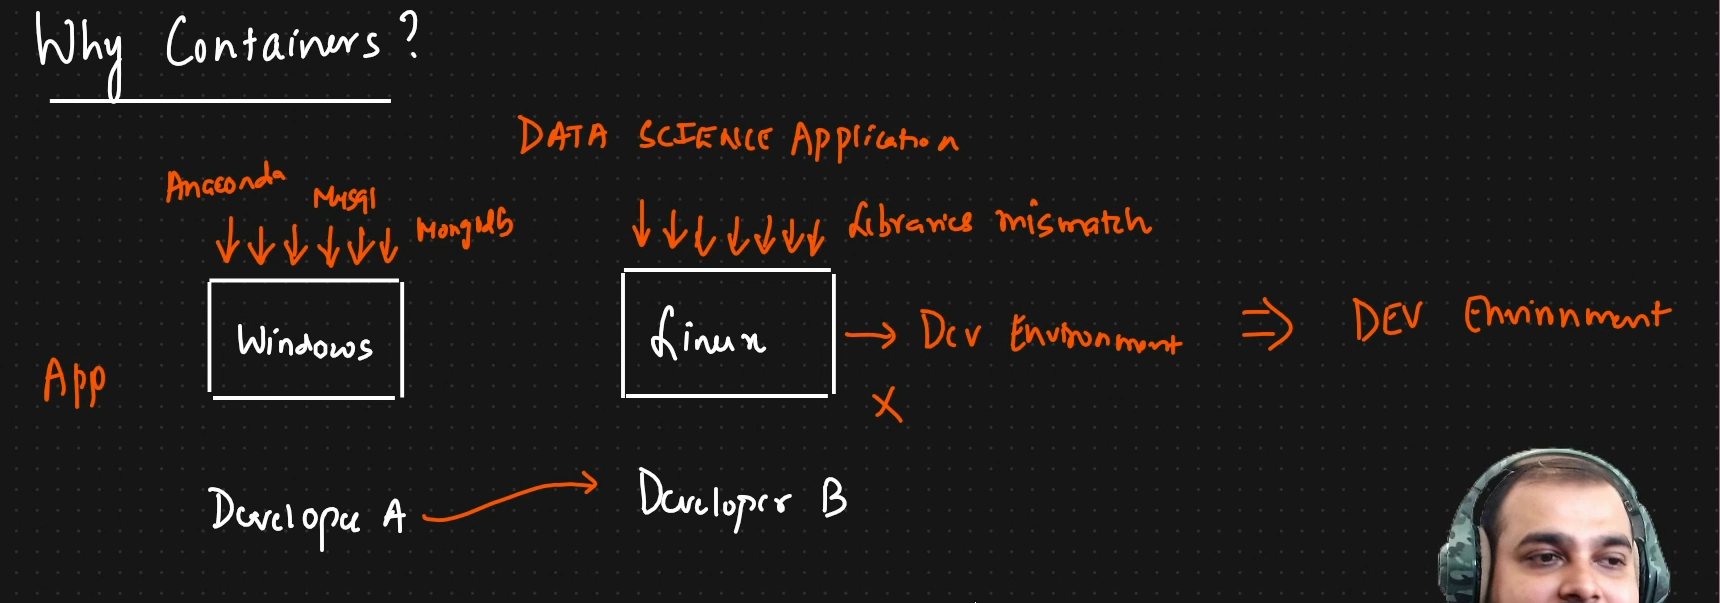 Why Containers?
DATA SCIENCE Application
Anaconda
Mysql
MongoDB
Libraries mismatch
Windows
Linux
Dev Environment
DEV Environment
App
X
Developer A
Developer B